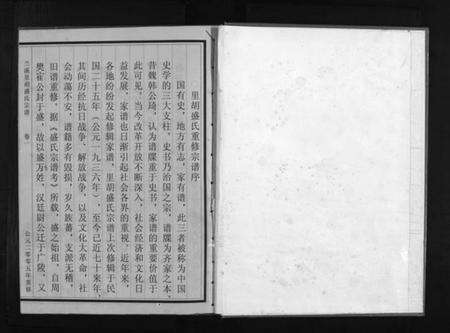 里胡盛氏重修宗谱序
国有史，地方有志，家有谱，此三者被称为中国
史学的三大支柱，史书乃治国之宗，谱牒为齐家之本，
昔魏韩公琦，认为谱牒重于史书，家谱的重要价值于
此可见。当今改革开放不断深入，社会经济和文化日
益发展，家谱也日渐引起社会各界的重视，近年来，
各地纷纷发起修辑家谱。里胡盛氏宗谱上次修辑于民
国二十五年（公元一九三六年），至今已近七十来年，
其间历经抗日战争、解放战争，以及文化大革命，社
会动荡不安，谱籍多有毁损，岁久族蕃，支派无稽，
旧谱重修，据《盛氏宗谱考》所载，盛之始祖，自周
樊宦公封于盛，故以盛为姓，汉廷尉公迁于广陵，又
兰溪里胡盛氏宗谱
卷
公元二零零五年重修